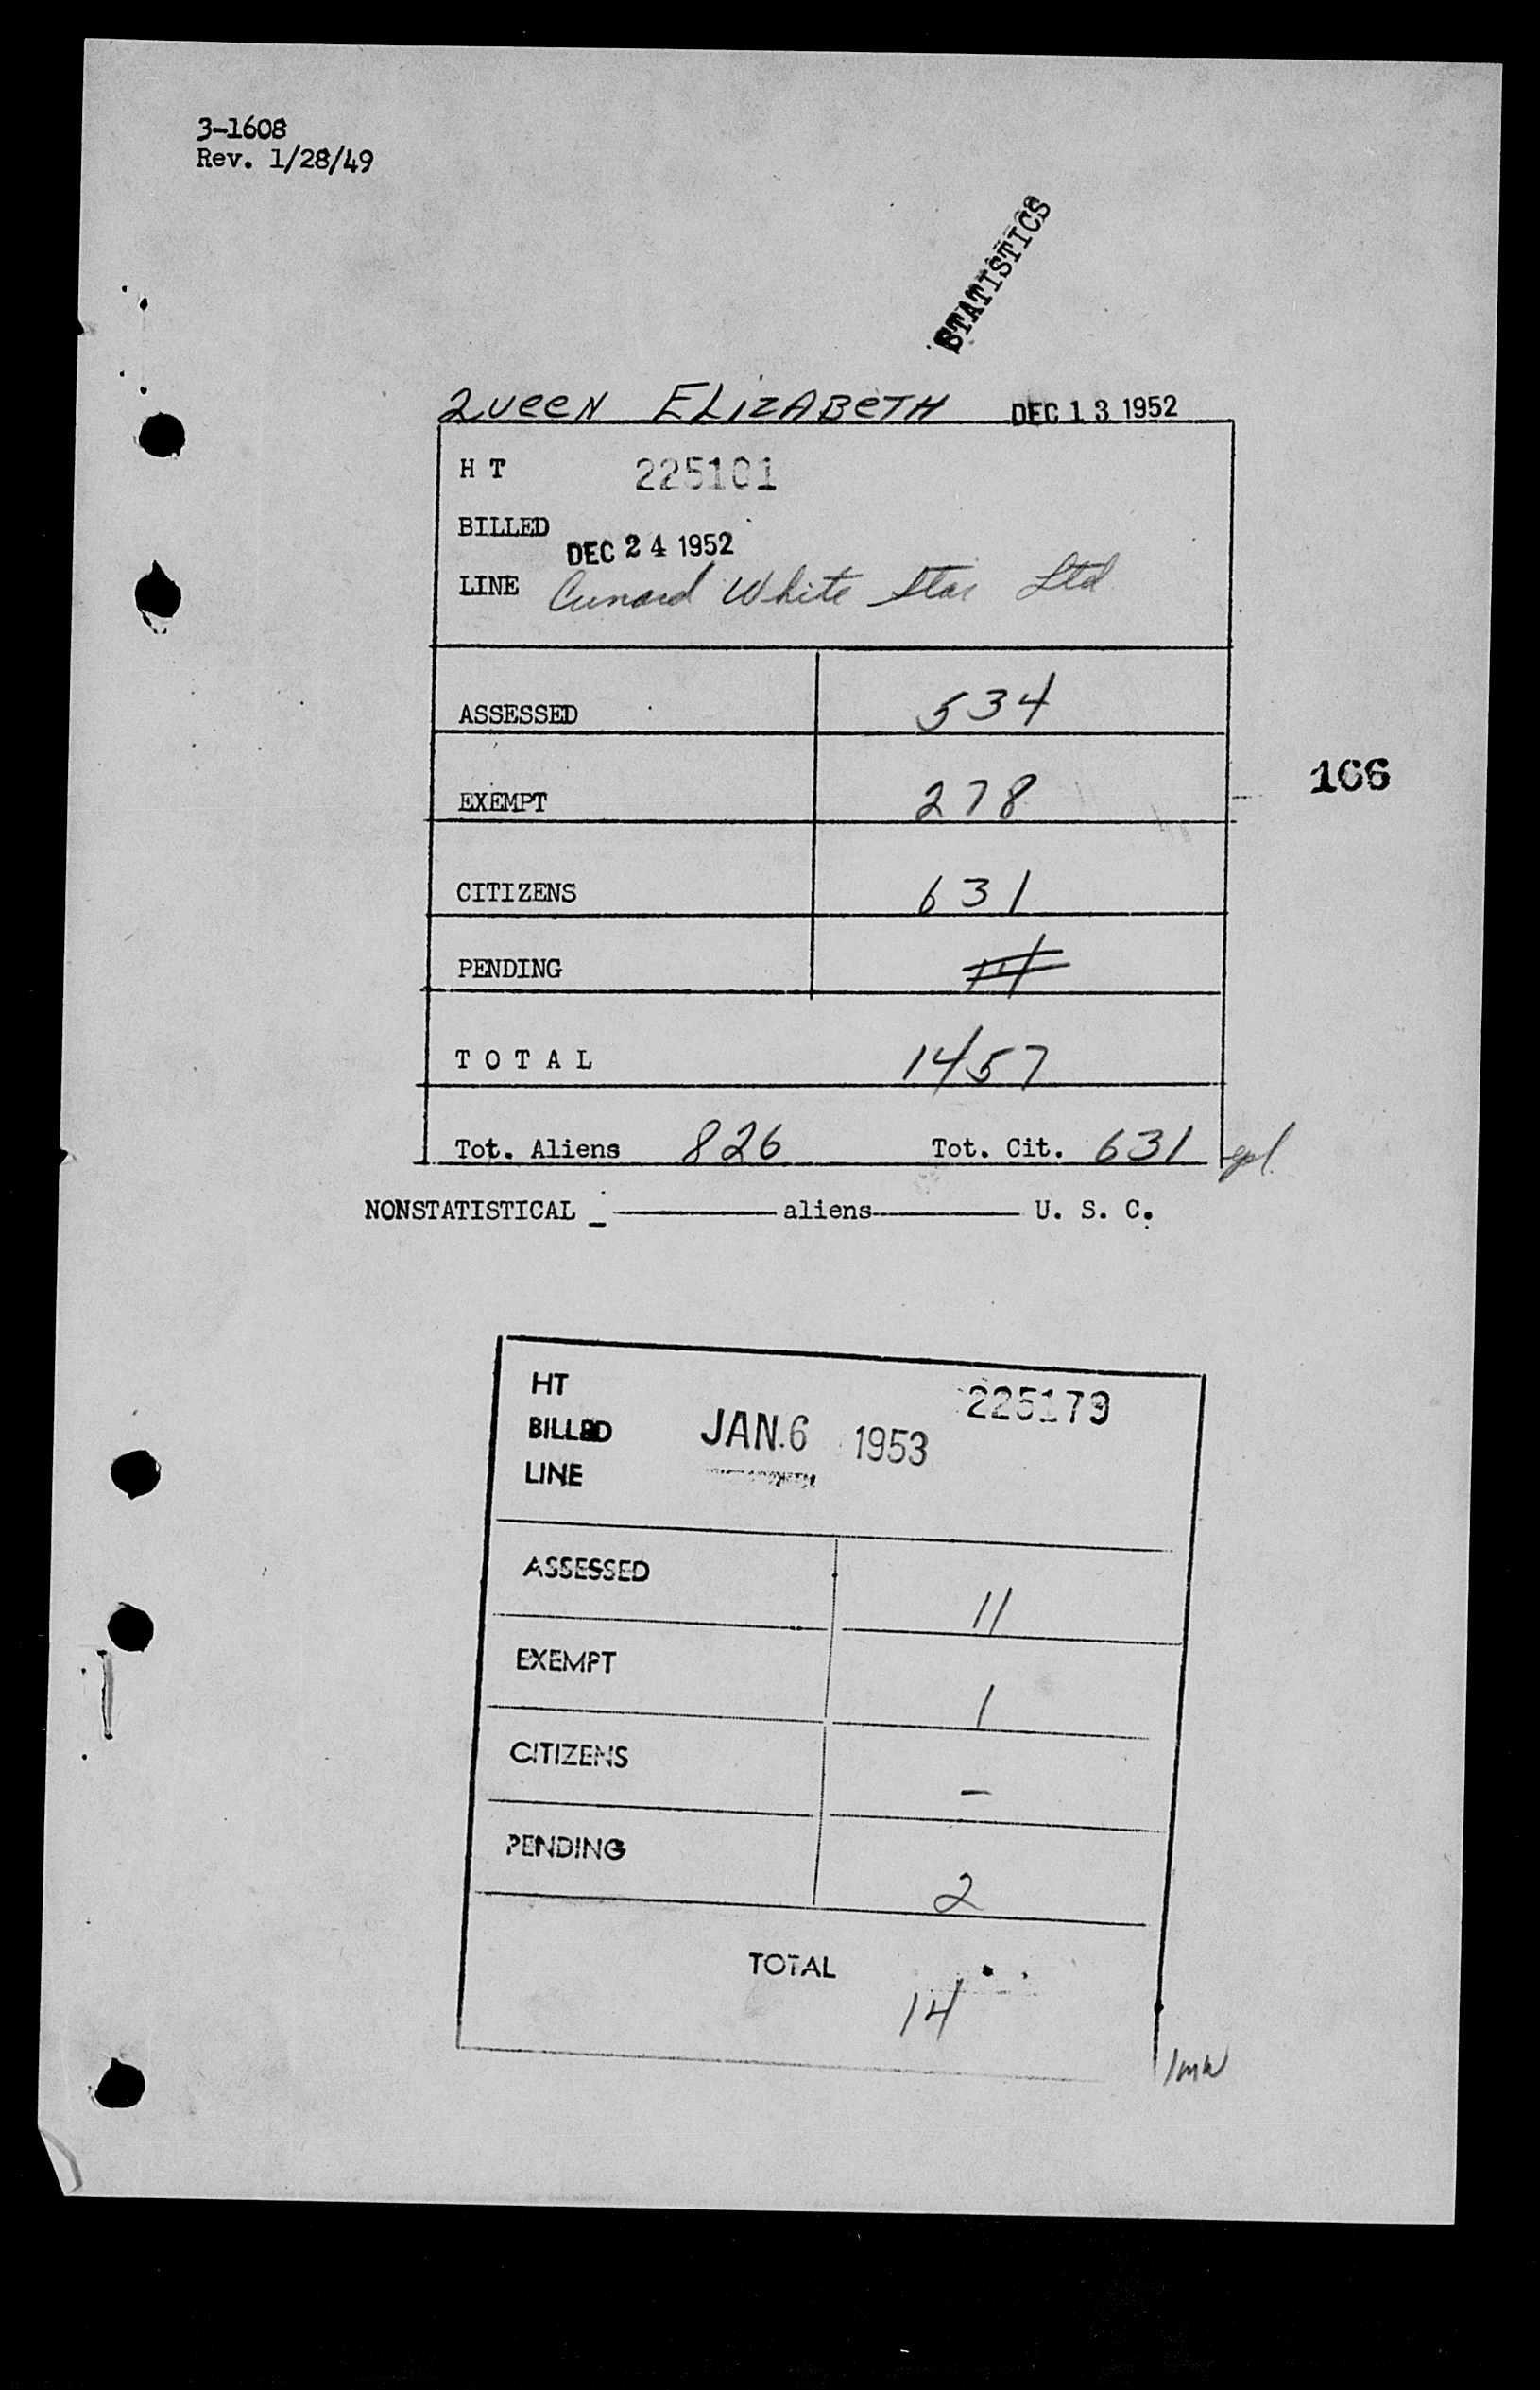 3-1608
Rev. 1/28/49
STATISTICS
QUEEN ELIZABETH DEC 13 1952
H T 225101
BILLED
DEC 24 1952
LINE Cunard White Star Ltd
ASSESSED 534
166
EXEMPT 278
CITIZENS 631
PENDING 14
TOTAL 1457
Tot. Aliens 826 Tot. Cit. 631
NONSTATISTICAL aliens U. S. C.
HT 225179
BILLED JAN. 6 1953
LINE
ASSESSED 11
EXEMPT 1
CITIZENS -
PENDING 2
TOTAL
14